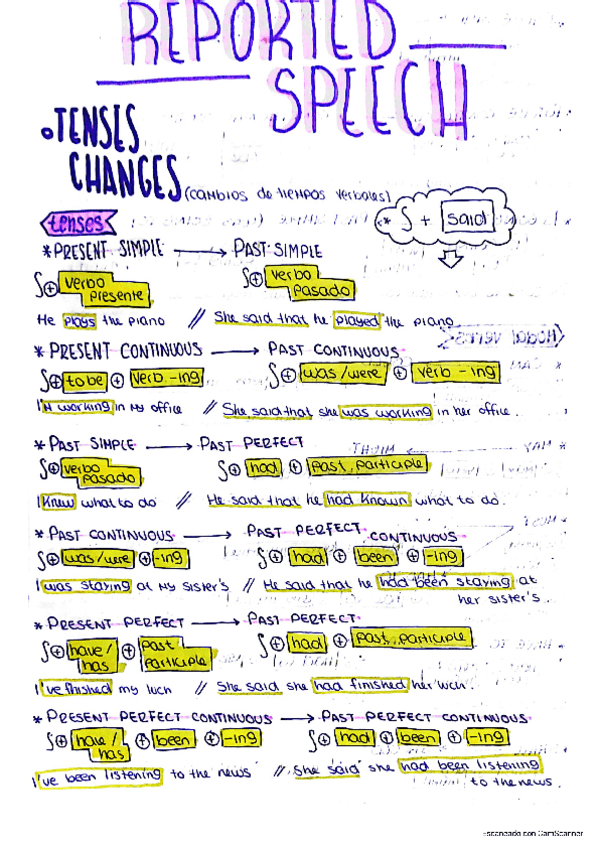 REPORTED
SPEECH
TENSES
CHANGES (cambios de tiempos verbales)
tenses
* S + said
* PRESENT SIMPLE → PAST SIMPLE
S + verbo presente
S + verbo pasado
He plays the piano // She said that he played the piano
* PRESENT CONTINUOUS → PAST CONTINUOUS
S + to be + verb -ing
S + was/were + verb -ing
I'm working in my office // She said that she was working in her office.
* PAST SIMPLE → PAST PERFECT
S + verbo pasado
S + had + past participle
I knew what to do // He said that he had known what to do.
* PAST CONTINUOUS → PAST PERFECT CONTINUOUS
S + was/were + -ing
S + had + been + -ing
I was staying at my sister's // He said that he had been staying at
her sister's
* PRESENT PERFECT → PAST PERFECT
S + have/has + past participle
S + had + past participle
I've finished my luch // She said she had finished her luch.
* PRESENT PERFECT CONTINUOUS → PAST PERFECT CONTINUOUS
S + have/has + been + -ing
S + had + been + -ing
I've been listening to the news // She said she had been listening
to the news.
Escaneado con CamScanner